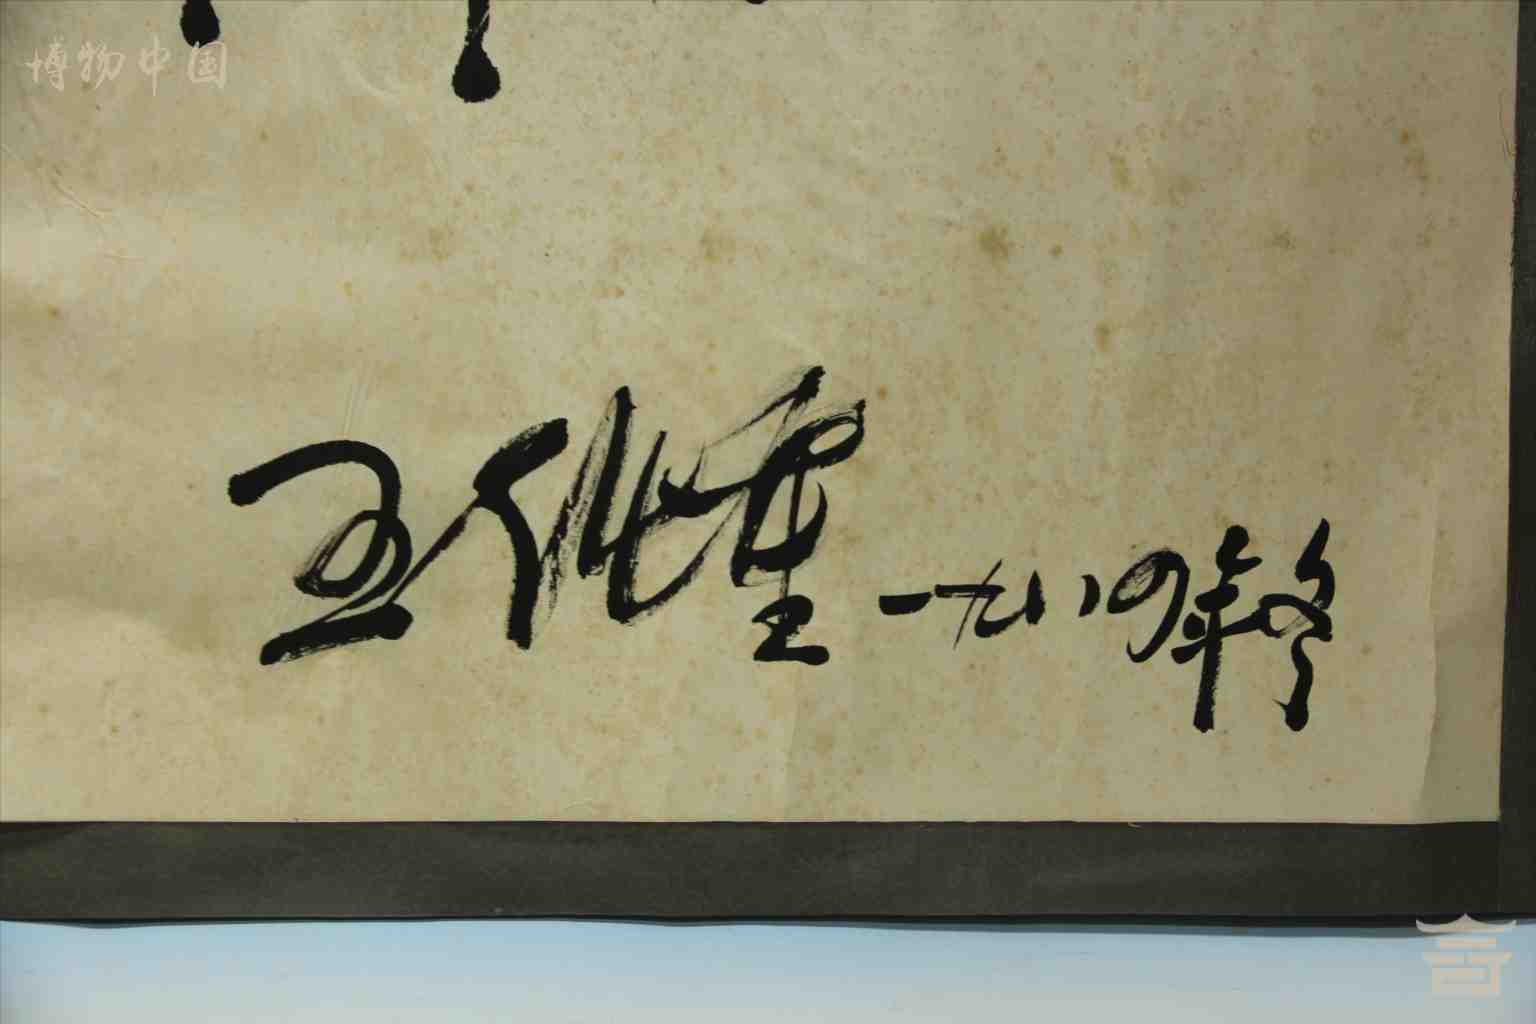 博物中国
王任重 一九八四年冬